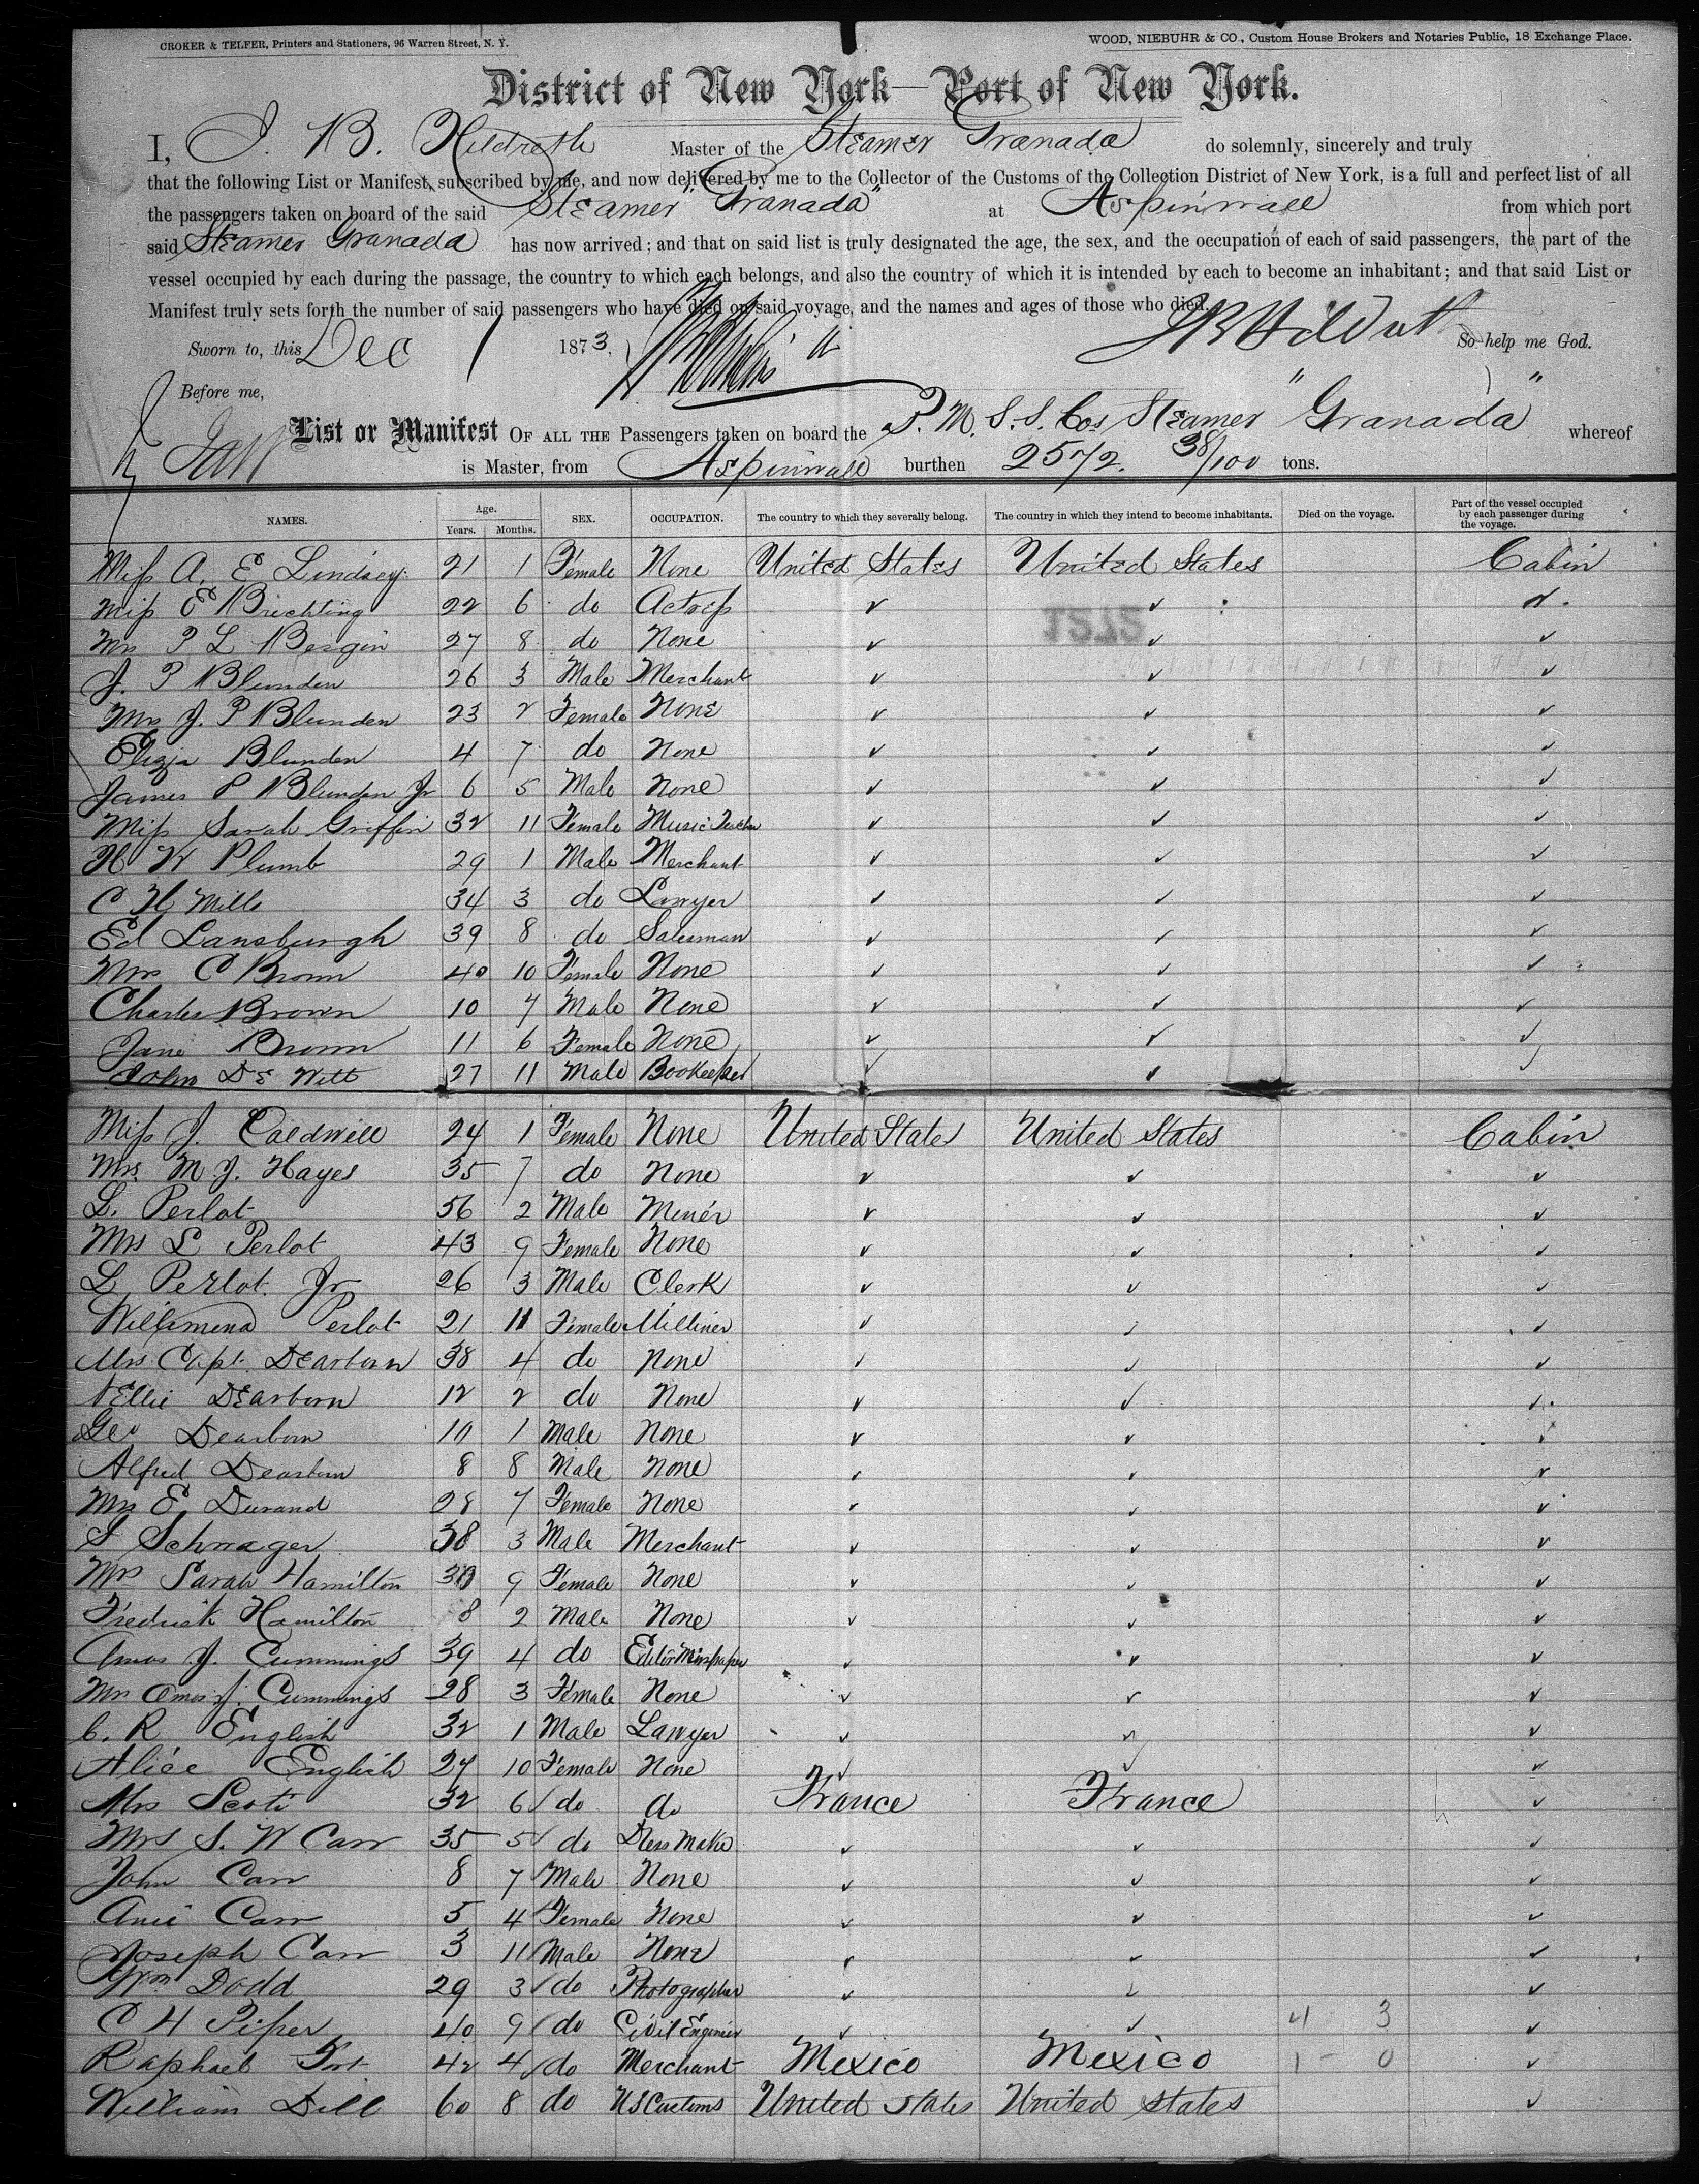 CROKER & TELFER, Printers and Stationers, 96 Warren Street, N. Y.
WOOD, NIEBUHR & CO., Custom House Brokers and Notaries Public, 18 Exchange Place.
District of New York—Port of New York.
I, J. B. Hildreth Master of the Steamer Granada do solemnly, sincerely and truly
that the following List or Manifest, subscribed by me, and now delivered by me to the Collector of the Customs of the Collection District of New York, is a full and perfect list of all
the passengers taken on board of the said Steamer "Granada" at Aspinwall from which port
said Steamer Granada has now arrived; and that on said list is truly designated the age, the sex, and the occupation of each of said passengers, the part of the
vessel occupied by each during the passage, the country to which each belongs, and also the country of which it is intended by each to become an inhabitant; and that said List or
Manifest truly sets forth the number of said passengers who have died on said voyage, and the names and ages of those who died.
Sworn to, this Dec 1 1873, JB Hildreth So help me God.
Before me,
List or Manifest OF ALL THE Passengers taken on board the P. M. S. S. Cos Steamer "Granada" whereof
is Master, from Aspinwall burthen 2572. 38/100 tons.
NAMES. Age. Years. Months. SEX. OCCUPATION. The country to which they severally belong. The country in which they intend to become inhabitants. Died on the voyage. Part of the vessel occupied by each passenger during the voyage.
Miss A. E Lindsey 21 1 Female None United States United States Cabin
Miss E Brichting 22 6 do Actress ✓ ✓ d.
Mrs P L Bergin 27 8 do None ✓ ✓ ✓
J. P Blunden 26 3 Male Merchant ✓ ✓ ✓
Mrs J. P Blunden 23 2 Female None ✓ ✓ ✓
Eliza Blunden 4 7 do None ✓ ✓ ✓
James P Blunden Jr 6 5 Male None ✓ ✓ ✓
Miss Sarah Griffin 32 11 Female Music Teacher ✓ ✓ ✓
H W Plumb 29 1 Male Merchant ✓ ✓ ✓
C H Mills 34 3 do Lawyer ✓ ✓ ✓
Ed Lansburgh 39 8 do Salesman ✓ ✓ ✓
Mrs C Brown 40 10 Female None ✓ ✓ ✓
Charles Brown 10 7 Male None ✓ ✓ ✓
Jane Brown 11 6 Female None ✓ ✓ ✓
John DE Witt 27 11 Male Bookeeper ✓ ✓ ✓
Miss J. Caldwell 24 1 Female None United States United States Cabin
Mrs. M J. Hayes 35 7 do None ✓ ✓ ✓
L. Perlot 56 2 Male Miner ✓ ✓ ✓
Mrs L Perlot 43 9 Female None ✓ ✓ ✓
L Perlot Jr 26 3 Male Clerk ✓ ✓ ✓
Willimena Perlot 21 11 Female Milliner ✓ ✓ ✓
Mrs Capt. Dearborn 38 4 do None ✓ ✓ ✓
Nellie Dearborn 12 2 do None ✓ ✓ ✓
Geo Dearborn 10 1 Male None ✓ ✓ ✓
Alfred Dearborn 8 8 Male None ✓ ✓ ✓
Mrs E Durand 28 7 Female None ✓ ✓ ✓
S Schwager 38 3 Male Merchant ✓ ✓ ✓
Mrs Sarah Hamilton 9 Female None ✓ ✓ ✓
Fredrick Hamilton 8 2 Male None ✓ ✓ ✓
Amos J. Cummings 39 4 do Editor Newspaper ✓ ✓ ✓
Mrs Amos J. Cummings 28 3 Female None ✓ ✓ ✓
C. R English 32 1 Male Lawyer ✓ ✓ ✓
Alice English 27 10 Female None ✓ ✓ ✓
Mrs Scoti 32 6 do do France France ✓
Mrs S. W Carr 35 5 do Dress Make ✓ ✓ ✓
John Carr 8 7 Male None ✓ ✓ ✓
Anie Carr 5 4 Female None ✓ ✓ ✓
Joseph Carr 3 11 Male None ✓ ✓ ✓
Wm. Dodd 29 3 do Photographer ✓ ✓ ✓
C H Piper 40 9 do Civil Engineer ✓ ✓ 4 3 ✓
Raphael 42 4 do Merchant Mexico Mexico 1 - 0 ✓
William Dill 60 8 do US Customs United States United States ✓